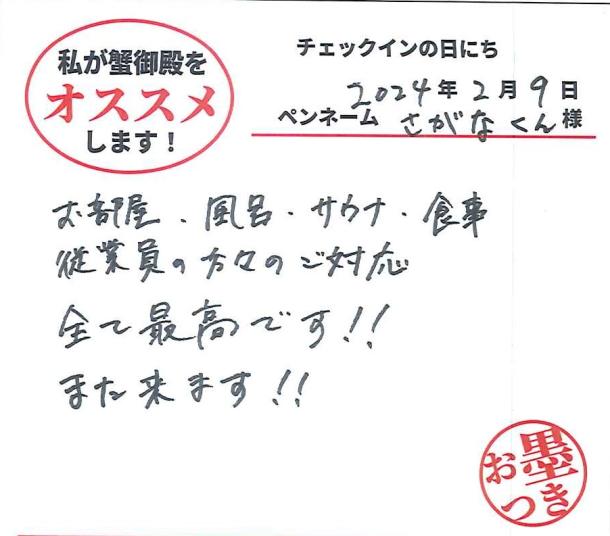 私が蟹御殿を
オススメ
します！
チェックインの日にち
2024年2月9日
ペンネーム さがなくん 様
お部屋・風呂・サウナ・食事
従業員の方々のご対応
全て最高です!!
また来ます!!
お墨
つき